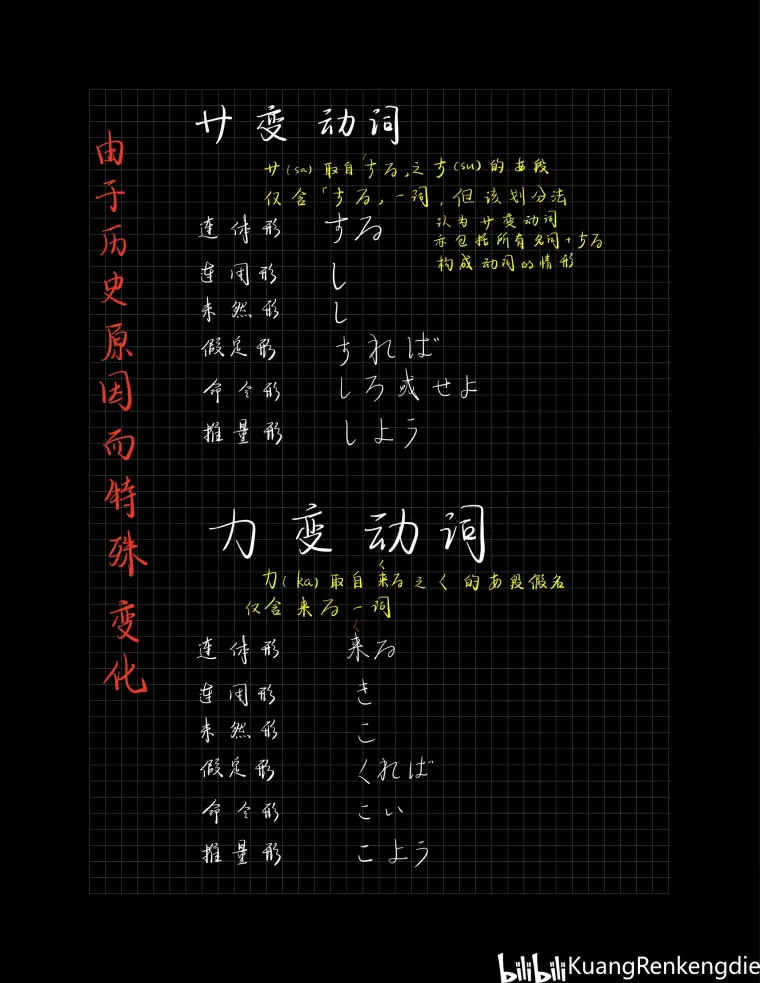 由于历史原因而特殊变化
サ变动词
サ(sa)取自「する」之す(su)的あ段
仅含「する」一词,但该划分法
认为サ变动词
亦包括所有名词+する
构成动词的情形
连体形 する
连用形 し
未然形 し
假定形 すれば
命令形 しろ或せよ
推量形 しよう
カ变动词
く
カ(ka)取自来る之く的あ段假名
仅含来る一词
く
连体形 来る
连用形 き
未然形 こ
假定形 くれば
命令形 こい
推量形 こよう
bilibili KuangRenkengdie